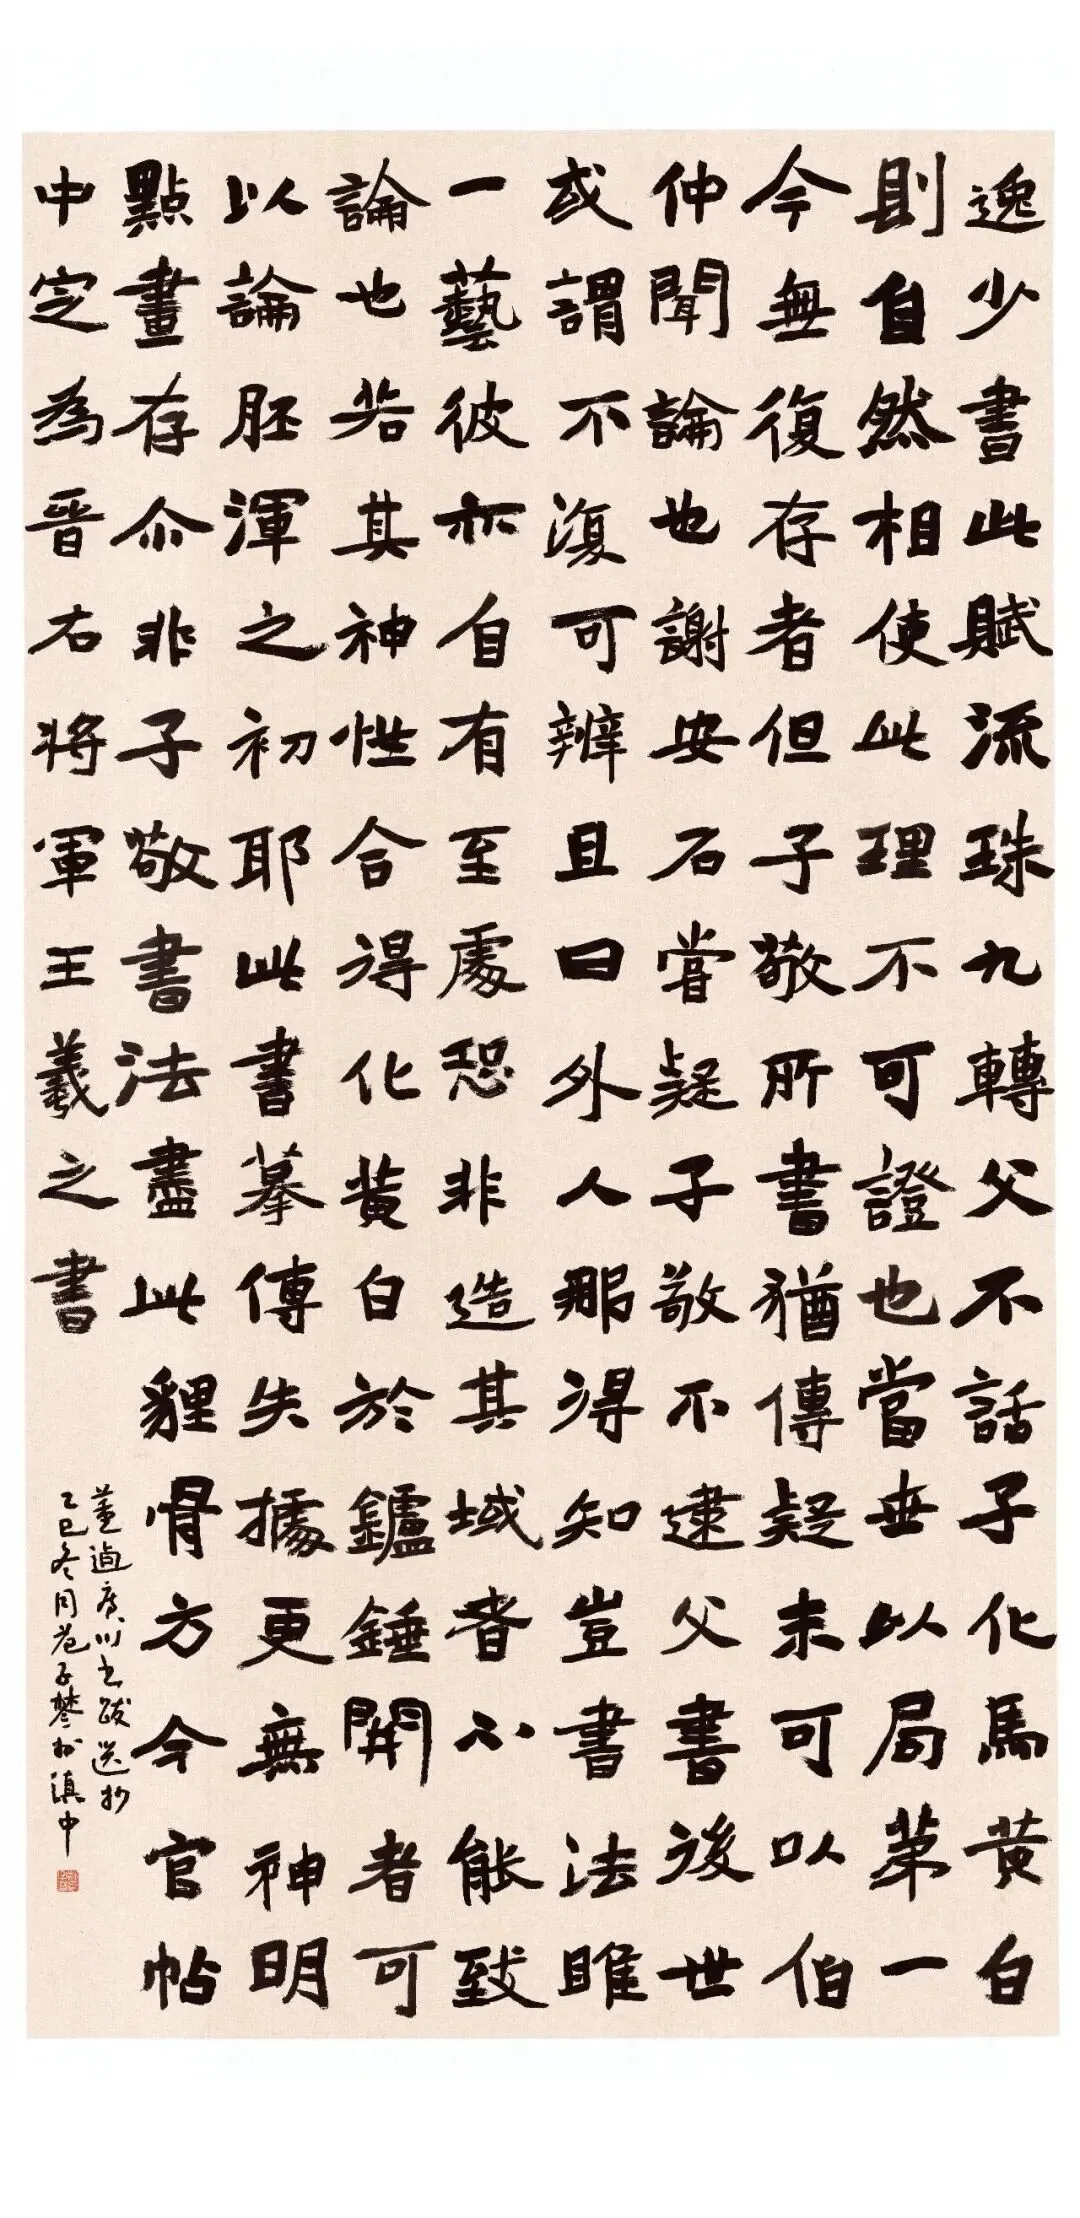 逸少書此賦流珠九轉父不話子化馬黃白
則自然相使此理不可證也當世以局第一
今無復存者但子敬所書猶傳疑未可以伯
仲聞論也謝安石嘗疑子敬不逮父書後世
或謂不復可辨且曰外人那得知豈書法雖
一藝彼亦自有至處恐非造其域者不能致
論也若其神性合得化黄白於鑪錘開者可
以論胚渾之初耶此書摹傳失據更無神明
點畫存尒非子敬書法盡此貍骨方今官帖
中定為晉右將軍王羲之書
董逌廣川書跋選抄
乙巳冬月范子 於滇中